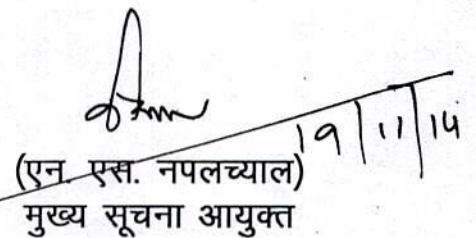 19/11/14
(एन. एस. नपलच्याल)
मुख्य सूचना आयुक्त